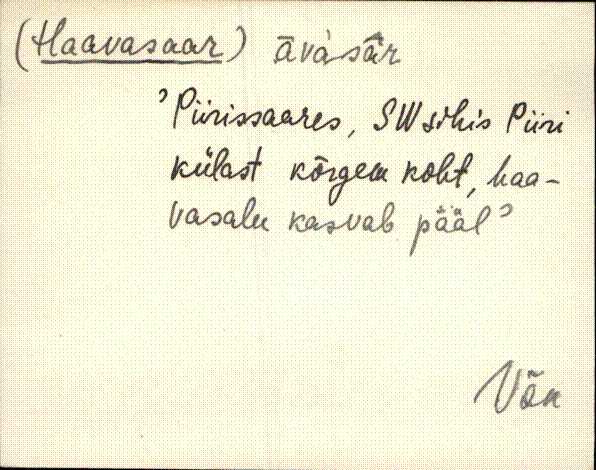 (Haavasaar) āvàsār
'Piirissaares, SW sihis Piiri
külast kõrgem koht, haa-
vasalu kasvab pääl'
Võn